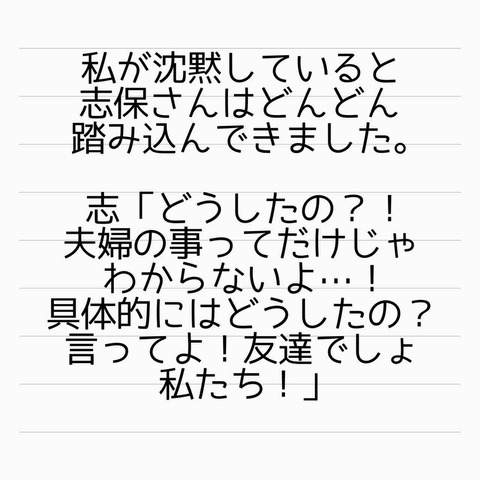 私が沈黙していると
志保さんはどんどん
踏み込んできました。
志「どうしたの？！
夫婦の事ってだけじゃ
わからないよ…！
具体的にはどうしたの？
言ってよ！友達でしょ
私たち！」